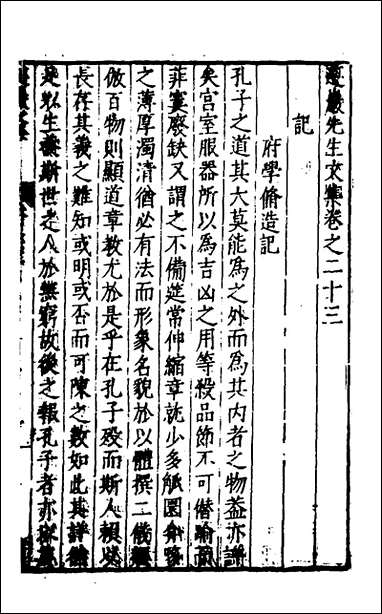 遵巖先生文集卷之二十三
記
府學脩造記
孔子之道其大莫能為之外而為其內者之物蓋亦謹
矣宮室服器所以為吉凶之用等殺品節不可僭踰而
菲寠廢缺又謂之不備筵常伸縮章就少多觚圜侖
之薄厚濁清猶必有法而形象名貌於以體撰二儀
倣百物則顯道章教尤於是乎在孔子歿而斯人賴以
長存其義之難知或明或否而可陳之數如此其詳
是以生養斯世之人於無窮故後之報孔子者亦